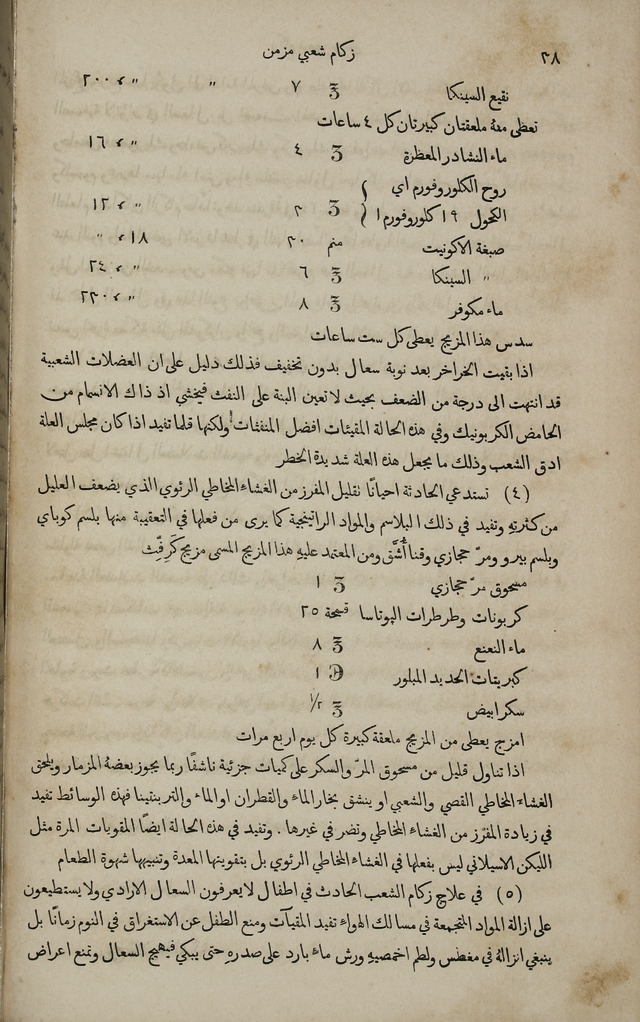 زكام شعبي مزمن ٣٨
نقيع السينكا ʒ ٧ " " ٢٠٠
تعطى منهُ ملعقتان كبيرتان كل ٤ ساعات
ماء النشادر المعطرة ʒ ٤ " ١٦
روح الكلوروفورم اي
الكحول ١٩ كلوروفورم ١ ʒ ٣ " ١٢
صبغة الاكونيت منم ٢٠ ١٨ "
" السينكا ʒ ٦ " ٢٤
ماء مكوفر ʒ ٨ " ٢٢٠
سدس هذا المزيج يعطى كل ست ساعات
اذا بقيت الخراخر بعد نوبة سعال بدون تخفيف فذلك دليل على ان العضلات الشعبية
قد انتهت الى درجة من الضعف بحيث لا تعين البتة على النفث فيخشى اذ ذاك الانسمام من
الحامض الكربونيك وفي هذه الحالة المقيئات افضل المنفثات ولكنها قلما تفيد اذا كان مجلس العلة
ادق الشعب وذلك ما يجعل هذه العلة شديدة الخطر
(٤) تستدعي الحادثة احيانًا تقليل المفرز من الغشاء المخاطي الرئوي الذي يضعف العليل
من كثرتهِ وتفيد في ذلك البلاسم والمواد الراتينجية كما يرى من فعلها في التعقيبة منها بلسم كوباي
وبلسم بيرو ومرّ حجازي وقنا أُشَّق ومن المعتمد عليهِ هذا المزيج المسمى مزيج كَرِفِّث
مسحوق مرّ حجازي ʒ ١
كربونات وطرطرات الپوتاسا قمحة ٢٥
ماء النعنع ℥ ٨
كبريتات الحديد المبلور ℈ ١
سكر ابيض ℥ ١/٢
امزج يعطى من المزيج ملعقة كبيرة كل يوم اربع مرات
اذا تناول قليل من مسحوق المرّ والسكر على كميات جزئية ناشفًا ربما يجوز بعضهُ المزمار ويلحق
الغشاء المخاطي القصي والشعبي او ينشق بخار الماء والقطران او الماء والتربنتينا فهذه الوسائط تفيد
في زيادة المفرَز من الغشاء المخاطي وتضر في غيرها . وتفيد في هذه الحالة ايضًا المقويات المرة مثل
الليكن الاسيلاني ليس بفعلها في الغشاء المخاطي الرئوي بل بتقويتها المعدة وتنبيهها شهوة الطعام
(٥) في علاج زكام الشعب الحادث في اطفال لا يعرفون السعال الارادي ولا يستطيعون
على ازالة المواد المتجمعة في مسالك الهواء تفيد المقيآت ومنع الطفل عن الاستغراق في النوم زمانًا بل
ينبغي انزالهُ في مغطس ولطم اخمصيهِ ورش ماء بارد على صدرهِ حتى يبكي فيهيج السعال وتمنع اعراض